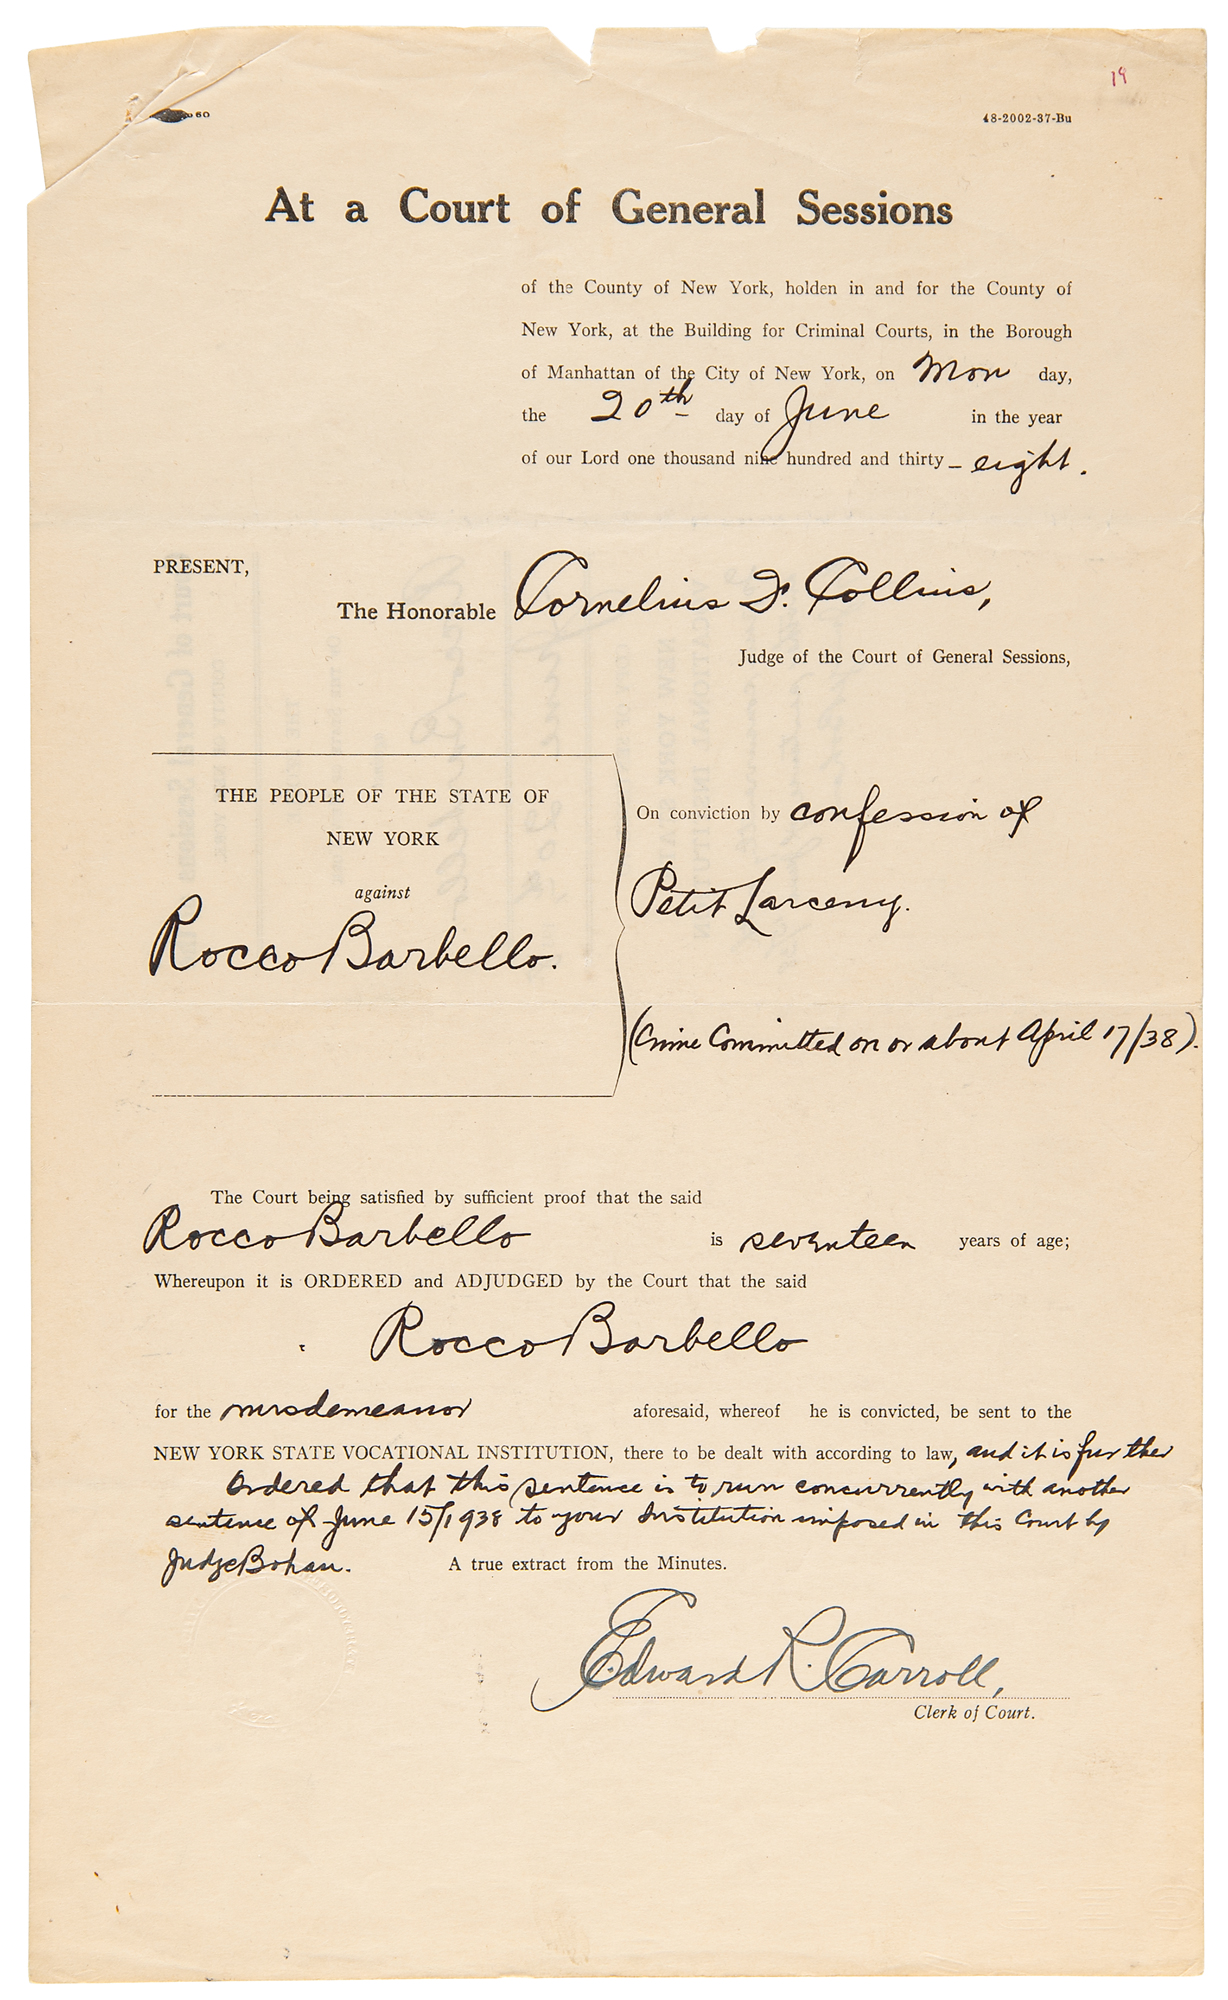 19
60
48-2002-37-Bu
At a Court of General Sessions
of the County of New York, holden in and for the County of
New York, at the Building for Criminal Courts, in the Borough
of Manhattan of the City of New York, on Mon day,
the 20th day of June in the year
of our Lord one thousand nine hundred and thirty-eight.
PRESENT,
The Honorable Cornelius F. Collins,
Judge of the Court of General Sessions,
THE PEOPLE OF THE STATE OF
NEW YORK
against
Rocco Barbello.
On conviction by confession of
Petit Larceny.
(Crime Committed on or about April 17/38).
The Court being satisfied by sufficient proof that the said
Rocco Barbello is seventeen years of age;
Whereupon it is ORDERED and ADJUDGED by the Court that the said
Rocco Barbello
for the misdemeanor aforesaid, whereof he is convicted, be sent to the
NEW YORK STATE VOCATIONAL INSTITUTION, there to be dealt with according to law, and it is further
Ordered that this sentence is to run concurrently with another
sentence of June 15/1938 to your Institution imposed in this Court by
Judge Bohan. A true extract from the Minutes.
Edward R. Carroll,
Clerk of Court.